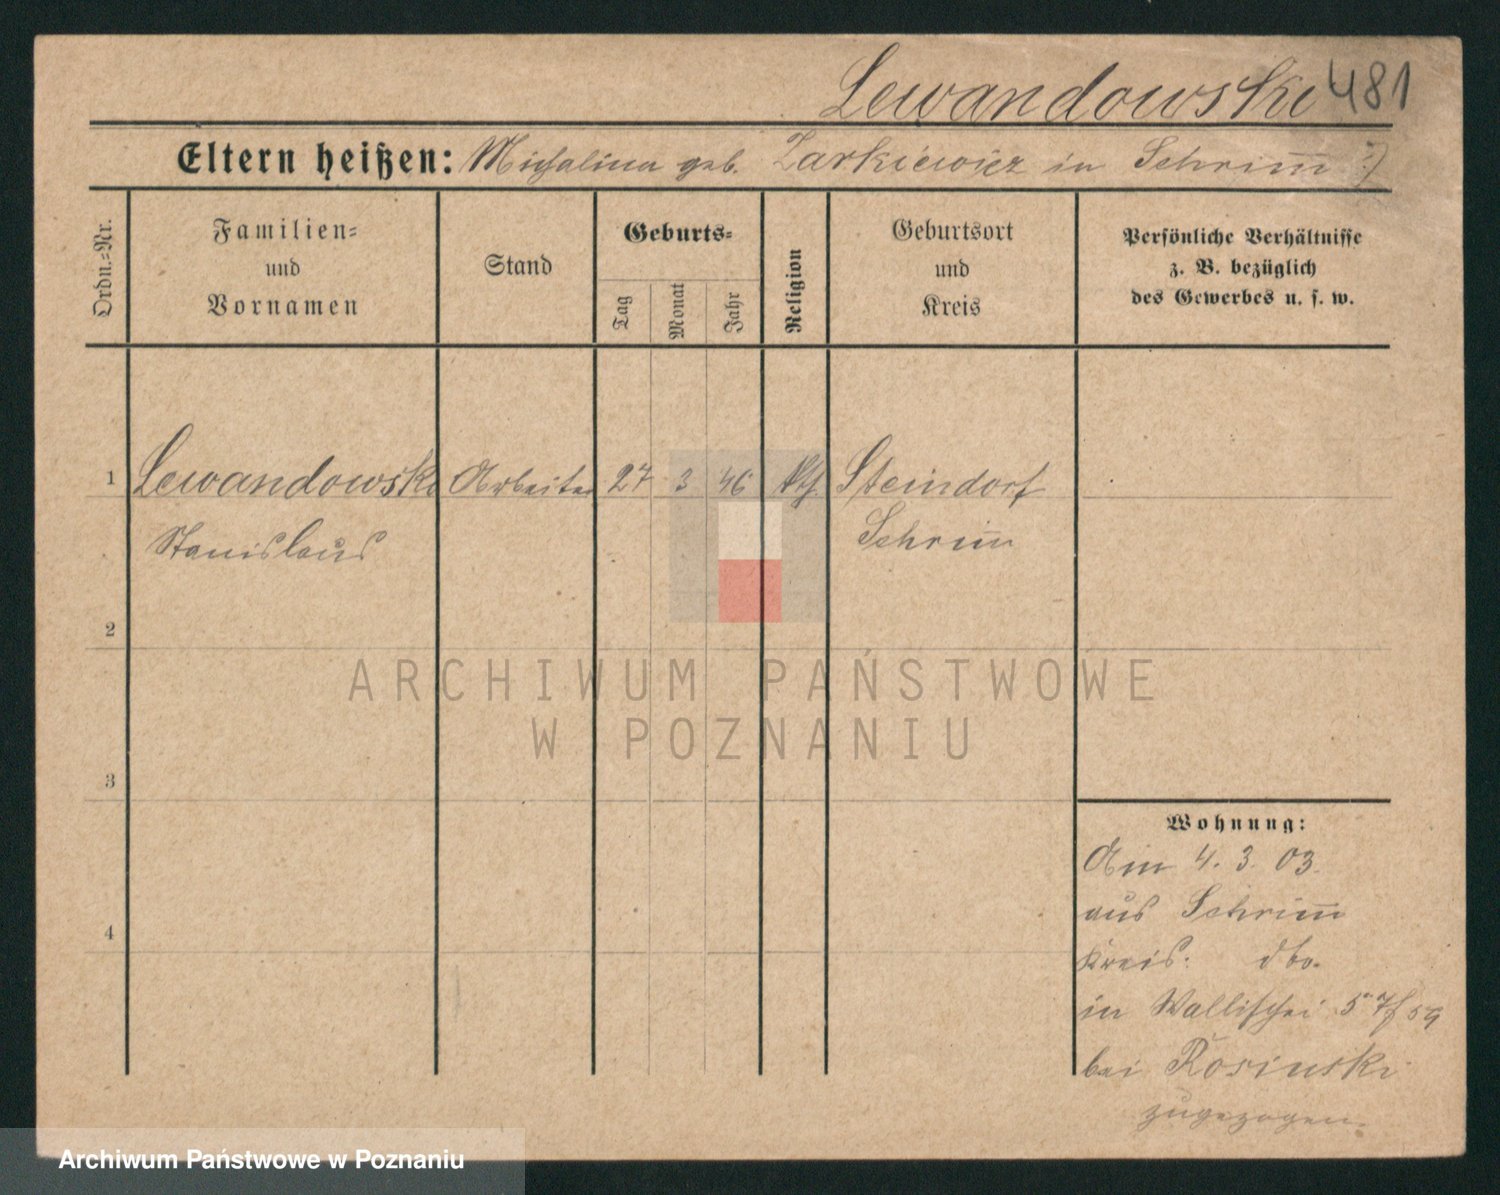 Lewandowski 481
Eltern heißen: Michalina geb. Zarkiewicz in Schrim̅
Ordn.-Nr.
Familien-
und
Vornamen
Stand
Geburts-
Tag
Monat
Jahr
Religion
Geburtsort
und
Kreis
Persönliche Verhältnisse
z. B. bezüglich
des Gewerbes u. s. w.
1 Lewandowski Arbeiter 27 3 46 kth Steindorf
Stanislaus Schrim̅
2
3
4
Wohnung:
Am 4. 3. 03.
aus Schrim̅
Kreis: dto.
in Wallischei 57/59
bei Rosinski
zugezogen.
ARCHIWUM PAŃSTWOWE
W POZNANIU
Archiwum Państwowe w Poznaniu